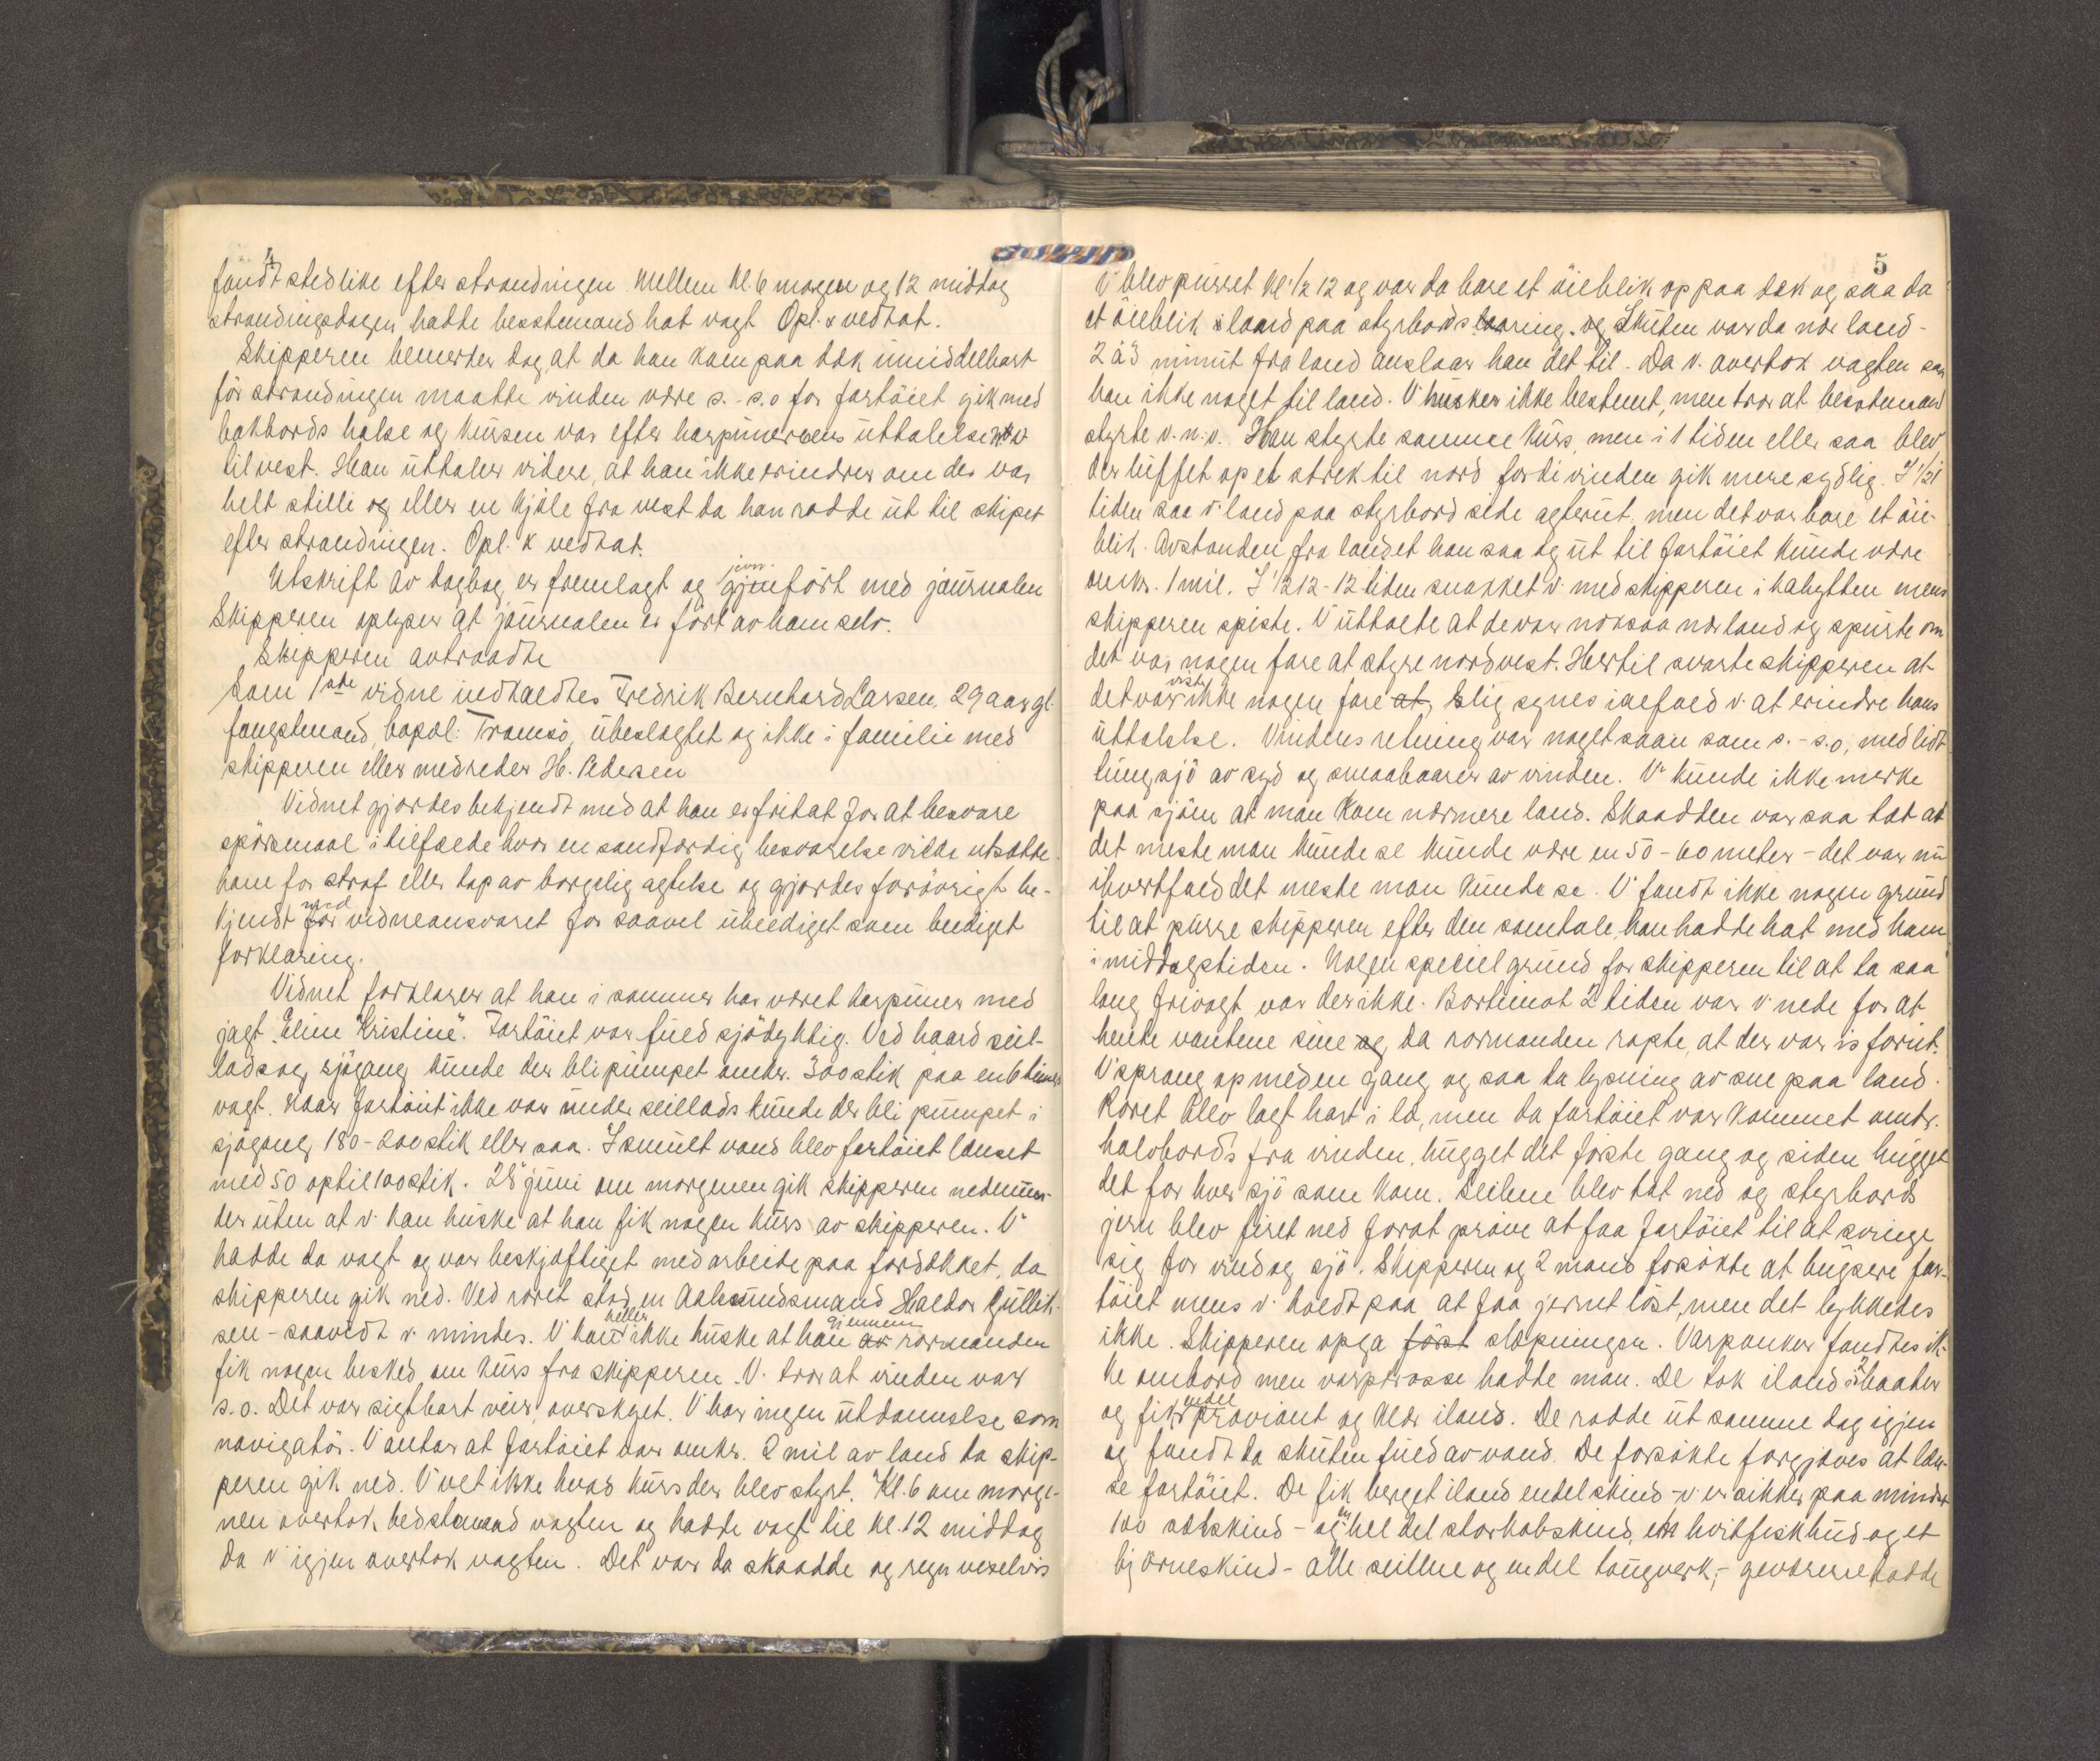 fandt sted like efter strandingen. Mellem kl. 6 morgen og 12 middag
strandingsdagen hadde besstemand hat vagt. Opl. & vedtat.
Skipperen bemerker dog, at da han kom paa dæk umiddelbart
før strandingen maatte vinden være s.-s.o for fartöiet gik med
bakbords halse og kursen var efter harpunerens uttalelse
til vest. Han uttaler videre, at han ikke erindrer om der var
helt stille og eller en kjöle fra vest da han rodde ut til skipet
efter strandingen. Opl. & vedtat.
Utskrift av dagbog er fremlagt og jevnfört med journalen
Skipperen oplyser at journalen er fört av ham selv.
Skipperen avtraadte
Som 1ste vidne indkaldtes Fredrik Bernhard Larsen, 29 aar gl.
fangstmand, bopæl: Tromsö, ubeslegtet og ikke i familie med
skipperen eller medreder H. Pedersen
Vidnet gjordes bekjendt med at han er fritat for at besvare
spörsmaal i tilfælde hvor en sandfærdig besvarelse vilde utsætte
ham for straf eller tap av borgerlig agtelse og gjordes forövrigt be-
kjendt med vidneansvaret for saavel ubeediget som beediget
forklaring.
Vidnet forklarer at han i sommer har været harpuner med
jagt "Eline Kristine". Fartöiet var fuld sjödygtig. Ved haard seil-
lads og sjögang kunde der bli pumpet omkr. 300 stik paa en 6 timers
vagt. Naar fartöiet ikke var under seillads kunde der bli pumpet i
sjögang 180-200 stik eller saa. I smult vand blev fartöiet lænset
med 50 optil 100 stik. 28 juni om morgenen gik skipperen nedenun-
der uten at v. kan huske at han fik nogen kurs av skipperen. V.
hadde da vagt og var beskjæftiget med arbeide paa fordækket, da
skipperen gik ned. Ved roret stod en Aalesundsmand Haldor Gullik-
sen - saavidt v. mindes. V. kan heller ikke huske at han gjennem rormanden
fik nogen besked om kurs fra skipperen. V. tror at vinden var
s.o. Det var sigtbart veir, overskyet. V har ingen utdannelse som
navigatör. V antar at fartöiet var omkr. 2 mil av land da skip-
peren gik ned. V. vet ikke hvad kurs der blev styrt. Kl. 6 om morge-
nen overtok bedstemand vagten og hadde vagt til kl. 12 middag
da v igjen overtok vagten. Det var da skoadde og regn vexelvis
5
V blev purret kl. 1/2 12 og var da bare et öieblik op paa dæk og saa da
et öieblik land paa styrbords laaring. og Skuten var da nær land -
2 à 3 minut fra land anslaar han det til. Da v. overtok vagten saa
han ikke noget til land. V. husker ikke bestemt, men tror at besstemand
styrte v.n.v. Han styrte samme kurs, men i 1 tiden eller saa blev
der luffet op et strek til nord fordi vinden gik mere sydlig. I 1/2 1
tiden saa v. land paa styrbord side agterut, men det var bare et öie-
blik. Avstanden fra landet han saa og ut til fartöiet kunde være
omkr. 1 mil. I 1/2 12 - 12 tiden snakket v. med skipperen i kahytten mens
skipperen spiste. V uttalte at de var noksaa nær land og spurte om
det var nogen fare at styre nordvest. Hertil svarte skipperen at
det var visst ikke nogen fare at, slig synes ialfald v. at erindre hans
uttalelse. Vindens retning var noget saan som s.-s.o, med lidt
tungsjö av syd og smaabaarer av vinden. V. kunde ikke merke
paa sjöen at man kom nærmere land. Skoadden var saa tæt at
det meste man kunde se kunde være en 50-60 meter - det var nu
ihvertfald det meste man kunde se. V. fandt ikke nogen grund
til at purre skipperen efter den samtale, han hadde hat med ham
i middagstiden. Nogen speciel grund for skipperen til at ta saa
lang frivagt var der ikke. Bortimot 2 tiden var v. nede for at
hente vantene sine og, da rormanden ropte, at der var is forut.
V. sprang op med en gang og saa da lysning av sne paa land.
Roret blev lagt hart i læ, men da fartöiet var kommet omkr.
halvbords fra vinden, hugget det förste gang og siden hugget
det for hver sjö som kom. Seilene blev tat ned og styrbords
jern blev firet ned forat pröve at faa fartöiet til at svinge
sig for vind og sjö. Skipperen og 2 mand forsökte at bugsere far-
töiet mens v. holdt paa at faa jernet löst, men det lykkedes
ikke. Skipperen opga först slæpningen. Varpanker fandtes ik-
ke ombord men varptrosse hadde man. De tok iland i 2 baater
og fik endel proviant og klær iland. De rodde ut samme dag igjen
og fandt da skuten fuld av vand. De forsökte forgjæves at læn-
se fartöiet. De fik berget iland endel skind - v. er sikker paa mindst
100 sælskind - og en hel del storkobskind, en hvitfiskhud og et
björneskind - alle seilene og en del taugverk, - geværene hadde